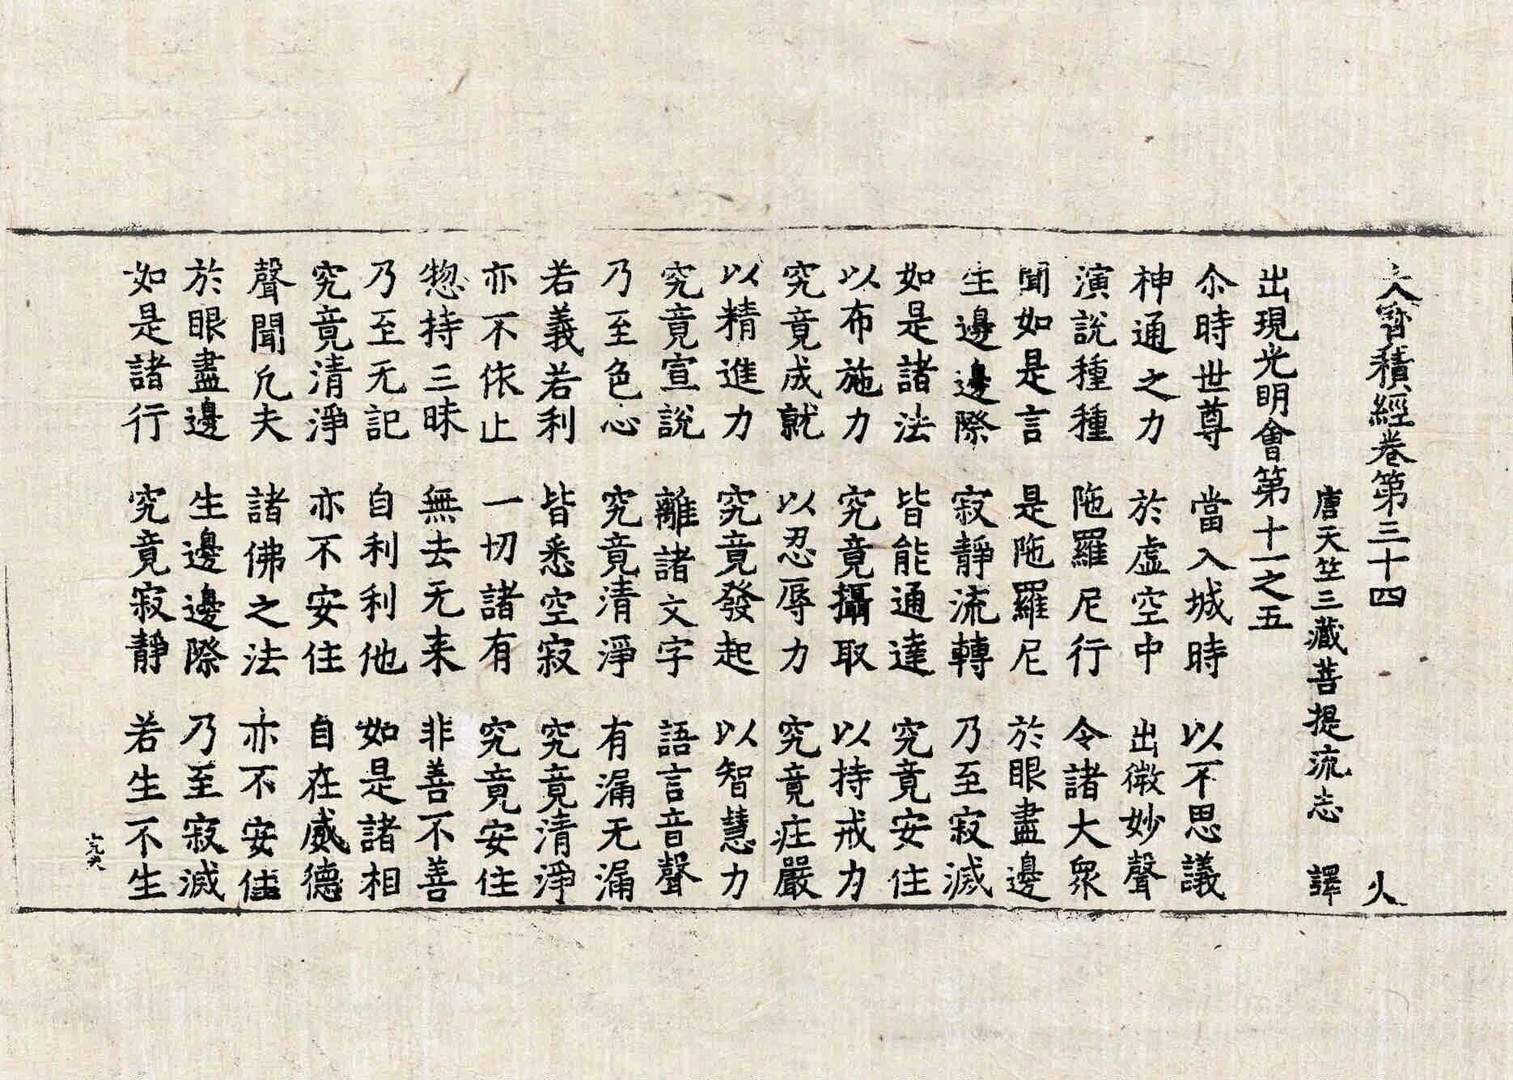 大寶積經卷第三十四 火
唐天竺三藏菩提流志 譯
出現光明會第十一之五
尒時世尊 當入城時 以不思議
神通之力 於虛空中 出微妙聲
演說種種 陁羅尼行 令諸大衆
聞如是言 是陁羅尼 於眼盡邊
生邊邊際 寂靜流轉 乃至寂滅
如是諸法 皆能通達 究竟安住
以布施力 究竟攝取 以持戒力
究竟成就 以忍辱力 究竟庄嚴
以精進力 究竟發起 以智慧力
究竟宣說 離諸文字 語言音聲
乃至色心 究竟清淨 有漏无漏
若義若利 皆悉空寂 究竟清淨
亦不依止 一切諸有 究竟安住
惣持三昧 無去无来 非善不善
乃至无記 自利利他 如是諸相
究竟清淨 亦不安住 自在威德
聲聞凡夫 諸佛之法 亦不安住
於眼盡邊 生邊邊際 乃至寂滅
如是諸行 究竟寂靜 若生不生